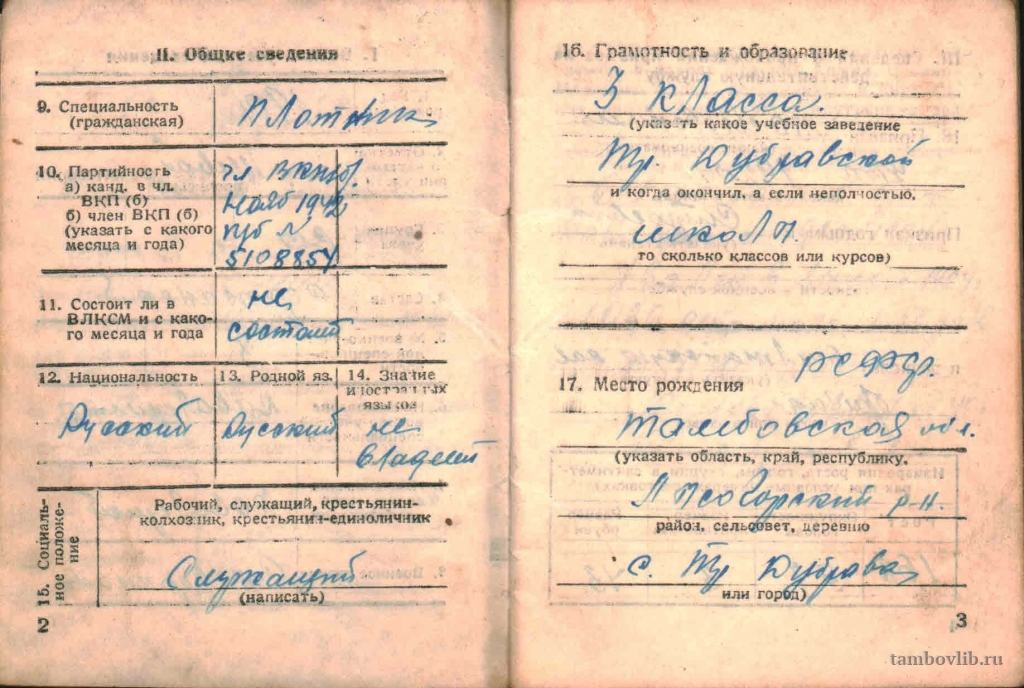 II. Общие сведения
9. Специальность
(гражданская)
плотник
10. Партийность
а) канд. в чл.
ВКП (б)
б) член ВКП (б)
(указать с какого
месяца и года)
чл ВКП(б)
нояб 1942
п/б №
5108854
11. Состоит ли в
ВЛКСМ и с како-
го месяца и года
не
состоит
12. Национальность
Русский
13. Родной яз.
Русский
14. Знание
иностранных
языков
не
владеет
15. Социаль-
ное положе-
ние
Рабочий, служащий, крестьянин-
колхозник, крестьянин-единоличник
Служащий
(написать)
2
16. Грамотность и образование
3 класса.
(указать какое учебное заведение
Тр. Дубравской
и когда окончил, а если неполностью,
школы.
то сколько классов или курсов)
РСФСР.
17. Место рождения
Тамбовская обл.
(указать область, край, республику,
Лысогорский р-н.
район, сельсовет, деревню
с. Тр Дубрава
или город)
3
tambovlib.ru